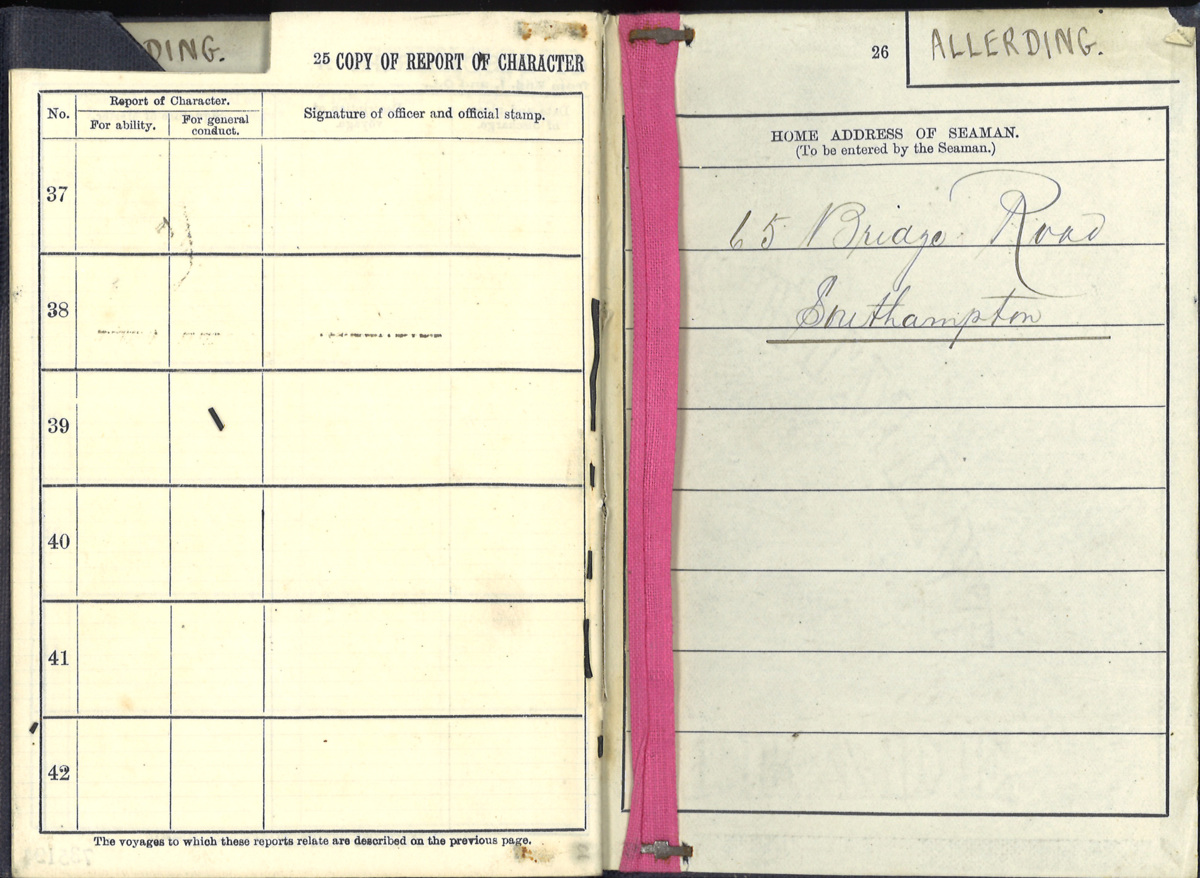 DING.
25 COPY OF REPORT OF CHARACTER
No.
Report of Character.
For ability.
For general conduct.
Signature of officer and official stamp.
37
38
39
40
41
42
The voyages to which these reports relate are described on the previous page.
26
ALLERDING.
HOME ADDRESS OF SEAMAN.
(To be entered by the Seaman.)
65 Bridge Road
Southampton